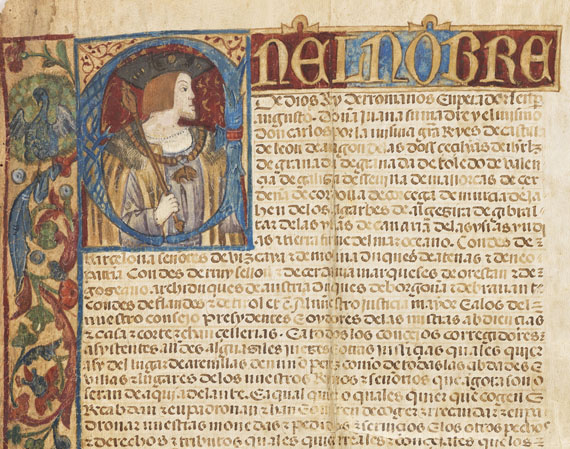 EN EL NOBRE
De dios Rey de rromanos Enperador senper
augusto. doña juana su madre y el mismo
don carlos por la misma gra Reyes de castilla
de leon de aragon de las dos secilias de ihrlz
de granada de toledo de valen
zia de galizia de sevilla de mallorcas de cer
deña de cordova de corcega de murcia de ja
hen de los algarbes de algezira de gibral
tar de las yslas de canaria de las ysas yndi
as tierra firme del mar oceano. Condes de
barcelona señores de vizcaya e de molina duques de atenas e de neo
patria Condes de rruysellon e de cerdania marqueses de orestan e de
goceano archiduques de austria duques de borgoña e de bravante
Condes de flandes e de tirol etc. Al nuestro justicia mayor E a los del
nuestro consejo presydentes E oydores de las nuestras abdiencias
e casa e corte e chancellerias. E a todos los conçejos corregidores
asystentes alldes alguaziles juezes justiçias quales quier
asy del lugar de como de todas las cibdades E
villas e lugares de los nuestros Reynos e señorios que agora son o
seran de aqui delante. E a qual quier o quales quier que cogen E
Recabdan e enpadronan e han de coger e rrecabdar e enpa
dronar nuestras monedas e pedidos e servicios E los otros pechos
e derechos e tributos quales quier rreales e conçejales que los